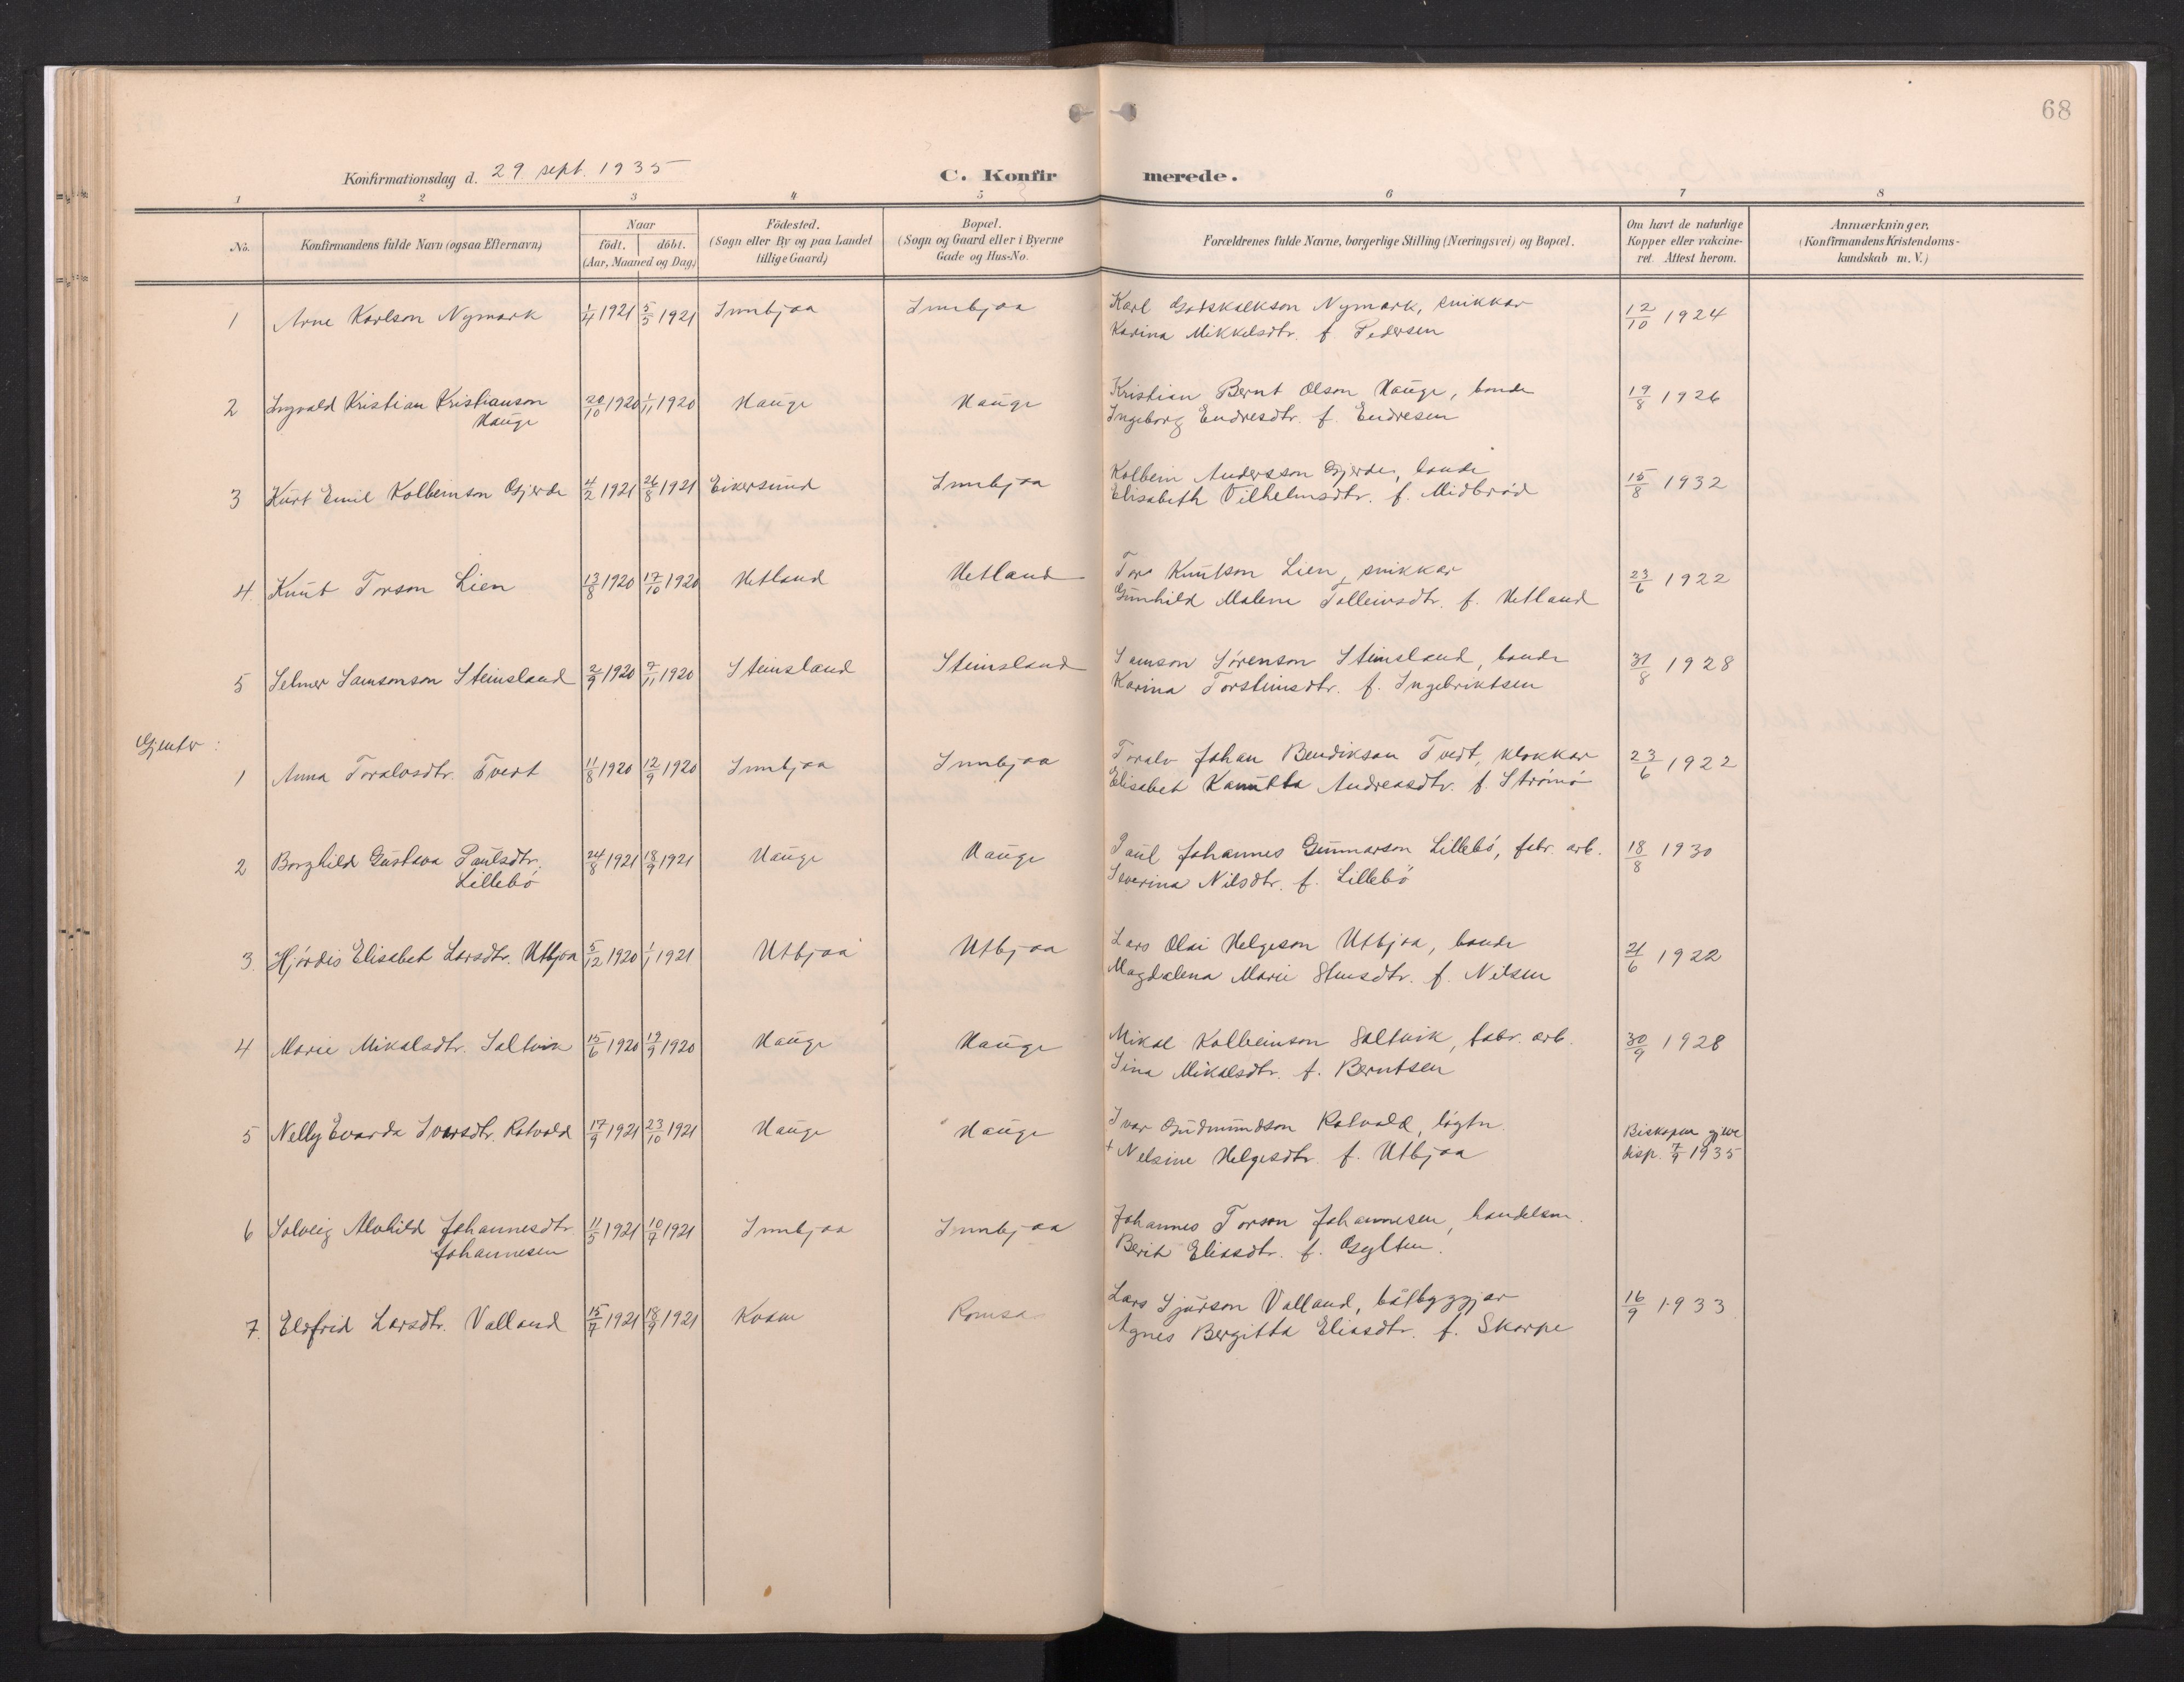 68
Konfirmationsdag d. 29 sept. 1935
C. Konfirmerede.
1 2 3 4 5 6 7 8
No.
Konfirmandens fulde Navn (ogsaa Efternavn)
Naar
födt. döbt.
(Aar, Maaned og Dag)
Födested.
(Sogn eller By og paa Landet
tillige Gaard)
Bopæl.
(Sogn og Gaard eller i Byerne
Gade og Hus-No.
Forældrenes fulde Navne, borgerlige Stilling (Næringsvei) og Bopæl.
Om havt de naturlige
Kopper eller vakcine-
ret. Attest herom.
Anmærkninger.
(Konfirmandens Kristendoms-
kundskab m. V.)
1 Arne Karlson Nymark 1/4 1921 5/5 1921 Innbjoa Innbjoa Karl Gotskalkson Nymark, snikkar 12/10 1924
Karina Mikkelsdtr. f. Pedersen
2 Ingvald Kristian Kristianson 20/10 1920 1/11 1920 Hauge Hauge Kristian Bernt Olson Hauge, bonde 19/8 1926
Hauge Ingeborg Endresdtr. f. Endresen
3 Kurt Emil Kolbeinson Gjerde 4/2 1921 26/8 1921 Eikersund Innbjoa Kolbein Andersson Gjerde, bonde 15/8 1932
Elisabeth Vilhelmsdtr. f. Midbröd
4. Knut Torson Lien 13/8 1920 17/10 1920 Hetland Hetland Tor Knutson Lien, snikkar 23/6 1922
Gunhild Malene Tolleivsdtr. f. Hetland
5 Selmer Samsonson Steinsland 2/9 1920 7/11 1920 Steinsland Steinsland Samson Sörenson Steinsland, bonde 31/8 1928
Karina Torsteinsdtr. f. Ingebriktsen
Gjentor:
1 Anna Toralvsdtr. Tveit 11/8 1920 12/9 1920 Innbjoa Innbjoa Toralv Johan Bendikson Tveit, klokkar 23/6 1922
Elisabet Kanutta Andreasdtr. f. Strömö
2 Borghild Gustava Paulsdtr. 24/8 1921 18/9 1921 Hauge Hauge Paul Johannes Gunnarson Lillebö, fabr. arb. 18/8 1930
Lillebö Severina Nilsdtr. f. Lillebö
3. Hjördis Elisabet Larsdtr. Utbjoa 5/12 1920 1/1 1921 Utbjoa Utbjoa Lars Olai Helgeson Utbjoa, bonde 21/6 1922
Magdalena Marie Stensdtr. f. Nilsen
4 Marie Mikalsdtr. Saltvik 15/6 1920 19/9 1920 Hauge Hauge Mikal Kolbeinson Saltvik, fabr. arb. 30/9 1928
Sina Mikalsdtr. f. Berntsen
5 Nelly Evarda Ivarsdtr. Rotvold 17/9 1921 23/10 1921 Hauge Hauge Ivar Gudmundson Rotvold, lögtn. Biskopen gjeve
+ Nelsine Helgesdtr. f. Utbjoa disp. 7/9 1935
6 Solveig Alvhild Johannesdtr. 11/5 1921 10/7 1921 Innbjoa Innbjoa Johannes Torson Johannesen, handelsm.
Johannesen Berit Eliasdtr. f. Gylten.
7. Eldfrid Larsdtr. Valland 15/7 1921 18/9 1921 Kvam Romsa Lars Sjurson Valland, båtbyggjar 16/9 1933
Agnes Bergitta Eliasdtr. f. Skorpe